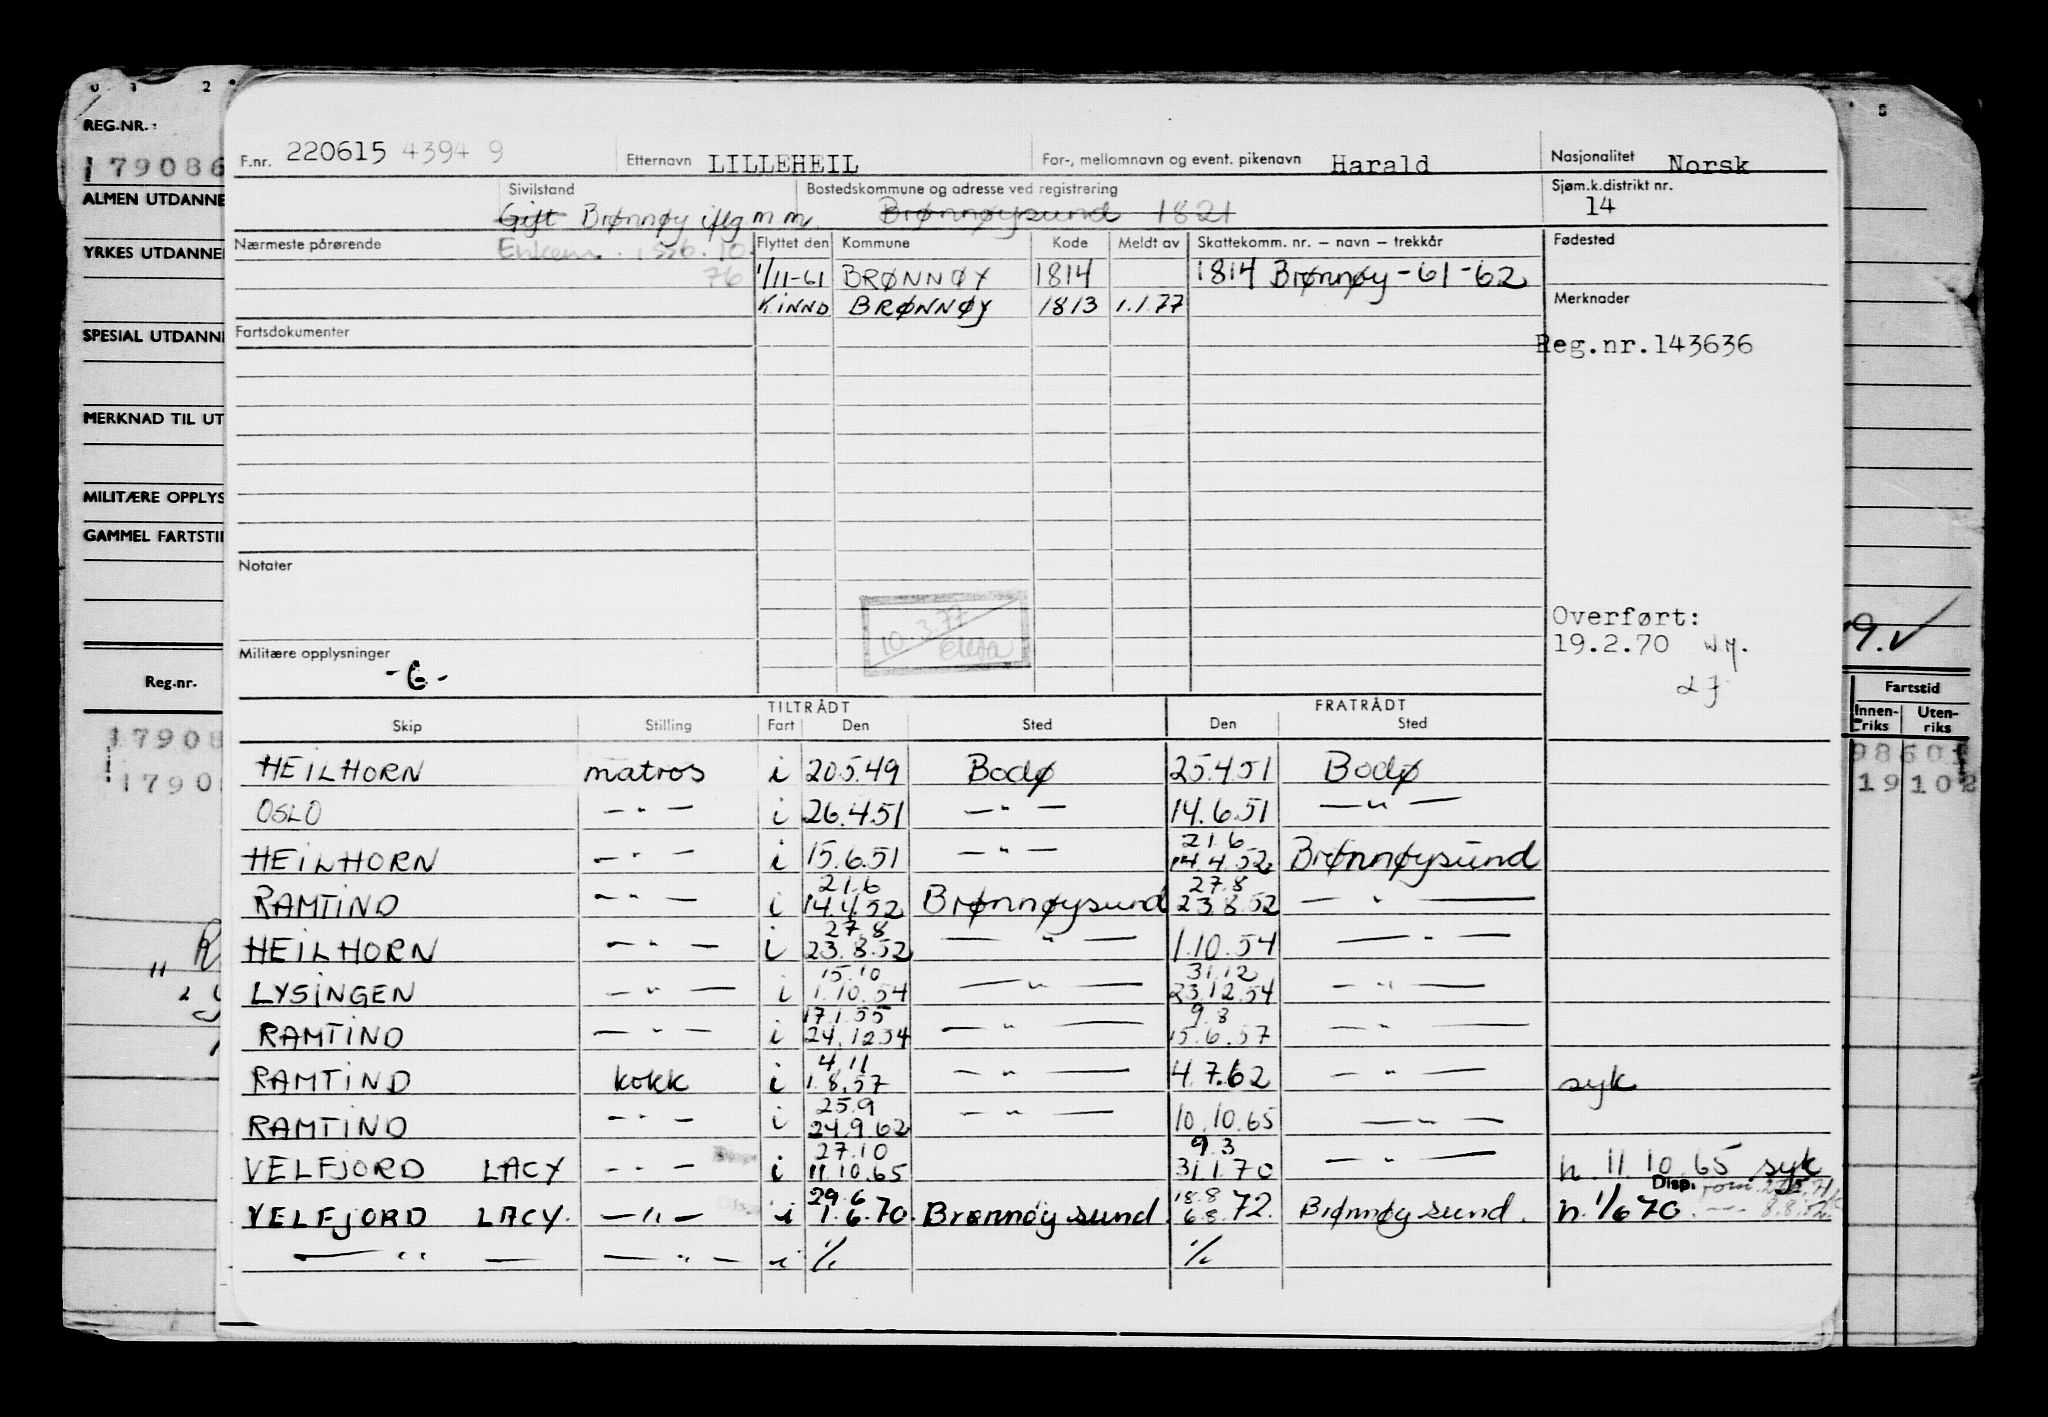 REG.NR.:
179086
ALMEN UTDANNE
YRKES UTDANNE
SPESIAL UTDANN
MERKNAD TIL UT
MILITÆRE OPPLYS
GAMMEL FARTSTI
Reg.nr.
17908
1790
F.nr. 220615 4394 9 Etternavn LILLEHEIL For-, mellomnavn og event. pikenavn Harald Nasjonalitet Norsk
Sivilstand Bostedskommune og adresse ved registrering Sjøm.k.distrikt nr.
Gift Brønnøy iflg m m. Brønnøysund 1821 14
Nærmeste pårørende Flyttet den Kommune Kode Meldt av Skattekomm. nr. – navn – trekkår Fødested
76 1/11-61 BRØNNØY 1814 1814 Brønnøy -61-62
K.INND BRØNNØY 1813 1.1.77 Merknader
Fartsdokumenter
Reg.nr.143636
Notater
10.3.77
Overført:
19.2.70 W.M.
Militære opplysninger
-G-
TILTRÅDT FRATRÅDT
Skip Stilling Fart Den Sted Den Sted
HEILHORN matros i 20.5.49 Bodø 25.4.51 Bodø
OSLO — " — i 26.4.51 — " — 14.6.51 — " —
21.6
HEILHORN — " — i 15.6.51 — " — 14.4.52 Brønnøysund
21.6 27.8
RAMTIND — " — i 14.4.52 Brønnøysund 23.8.52 — " —
27.8
HEILHORN — " — i 23.8.52 — " — 1.10.54 — " —
15.10 31.12
LYSINGEN — " — i 1.10.54 — " — 23.12.54 — " —
17.1.55 9.8
RAMTIND — " — i 24.12.54 — " — 15.6.57 — " —
4.11
RAMTIND kokk i 1.8.57 — " — 4.7.62 — " — syk
25.9
RAMTIND — " — i 24.9.62 — " — 10.10.65 — " —
27.10 9.3
VELFJORD LACY — " — i 11.10.65 31.1.70 — " — h. 11.10.65 syk
29.6 18.8 Disp.
VELFJORD LACY. — " — i 1.6.70. Brønnøysund. 6.8.72. Brønnøysund. h. 1/6 70
— " — — " — i 1/. 1/.
9.✓
Fartstid
Innen-riks Uten-riks
98601
19102